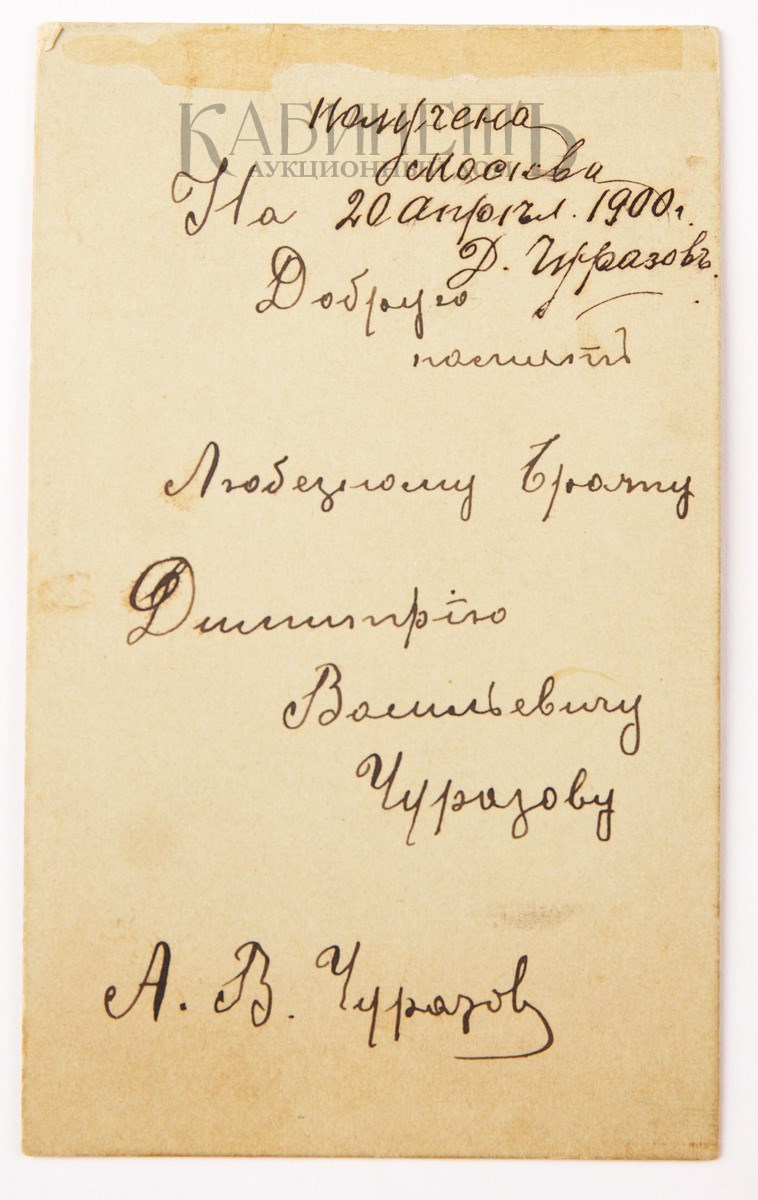 КАБИНЕТЪ
АУКЦИОННЫЙ ДОМ
получена
Москва
20 Апрѣл. 1900 г.
Д. Чуразовъ.
На
Добрую
память
Любезному Брату
Димитрію
Васильевичу
Чуразову
А. В. Чуразов